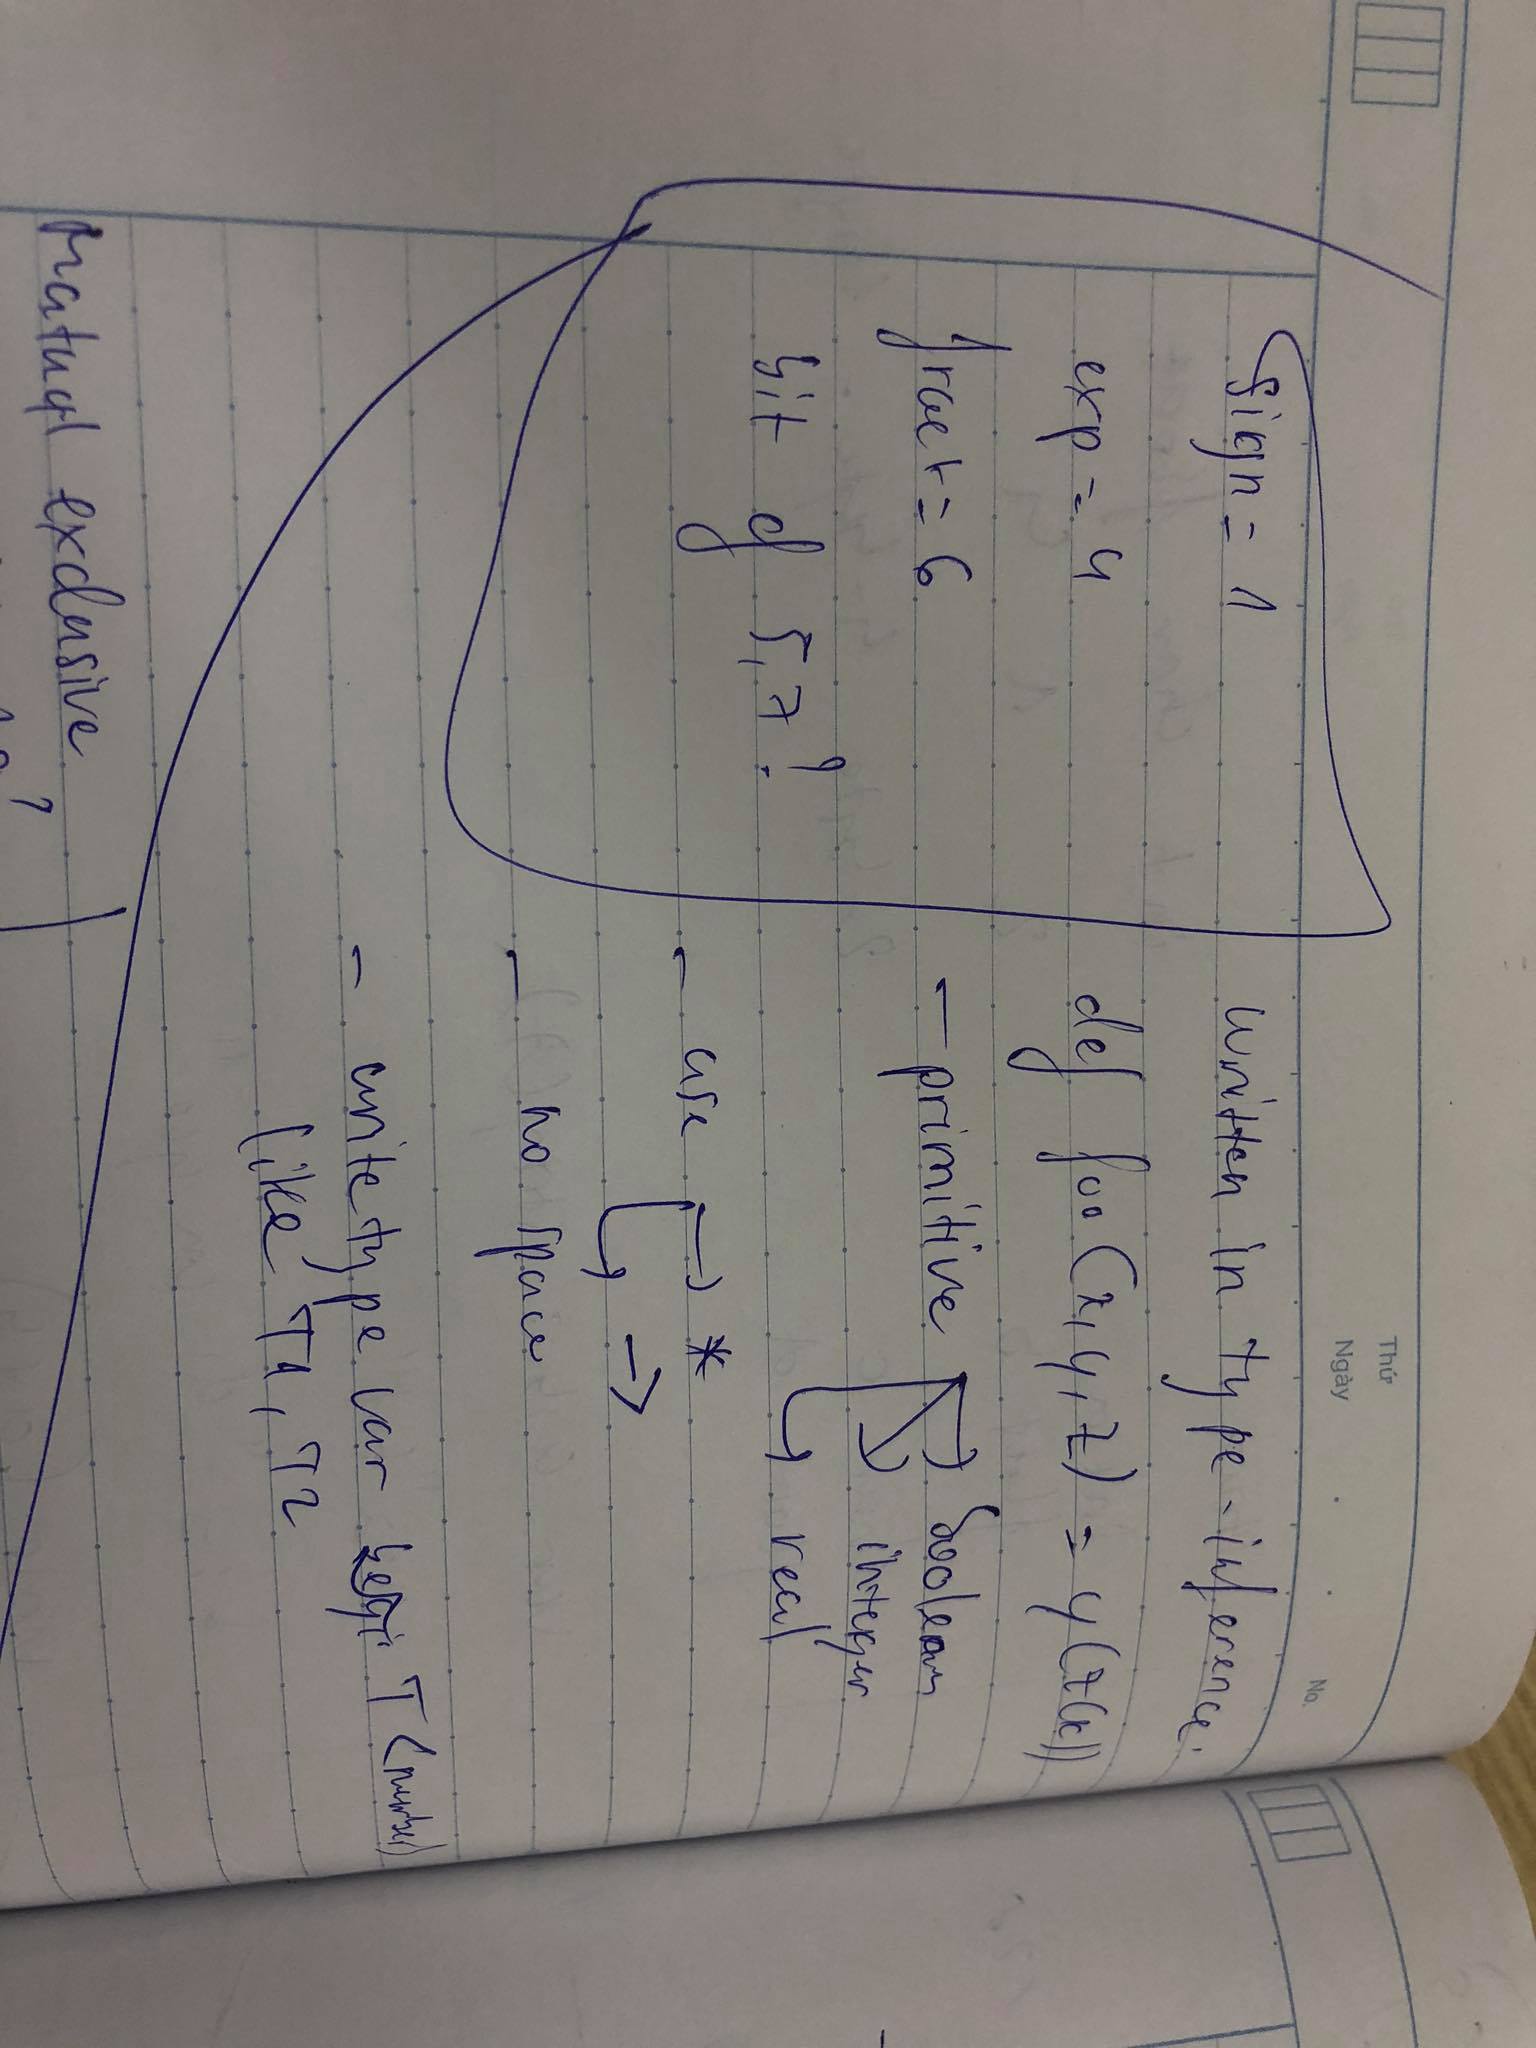 Thứ
Ngày
No.
sign = 1
exp = 4
fract = 6
bit of 5,7!
written in type-inference.
def foo(x, y, z) = y(z(x))
- primitive → boolean
→ integer
→ real
- use → *
→ ->
- no space
- write type var T (number)
like T1, T2
Matual exclusive